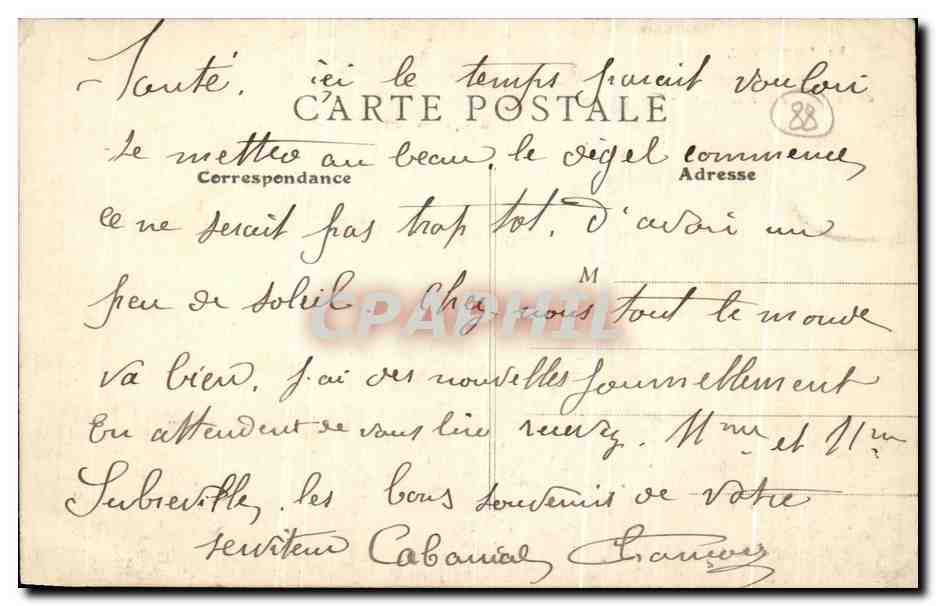 Santé. içi le temps parait vouloir
CARTE POSTALE
88
se mettre au beau, le dégel commence,
Correspondance
Adresse
ce ne serait pas trop tot, d'avoir un
M
peu de soleil. Chez-nous tout le monde
CPAPHIL
va bien. j'ai des nouvelles journellement
En attendent de vous lire recevez. Mme et Mr
Subreville, les bons souvenirs de votre
serviteur Cabanial François